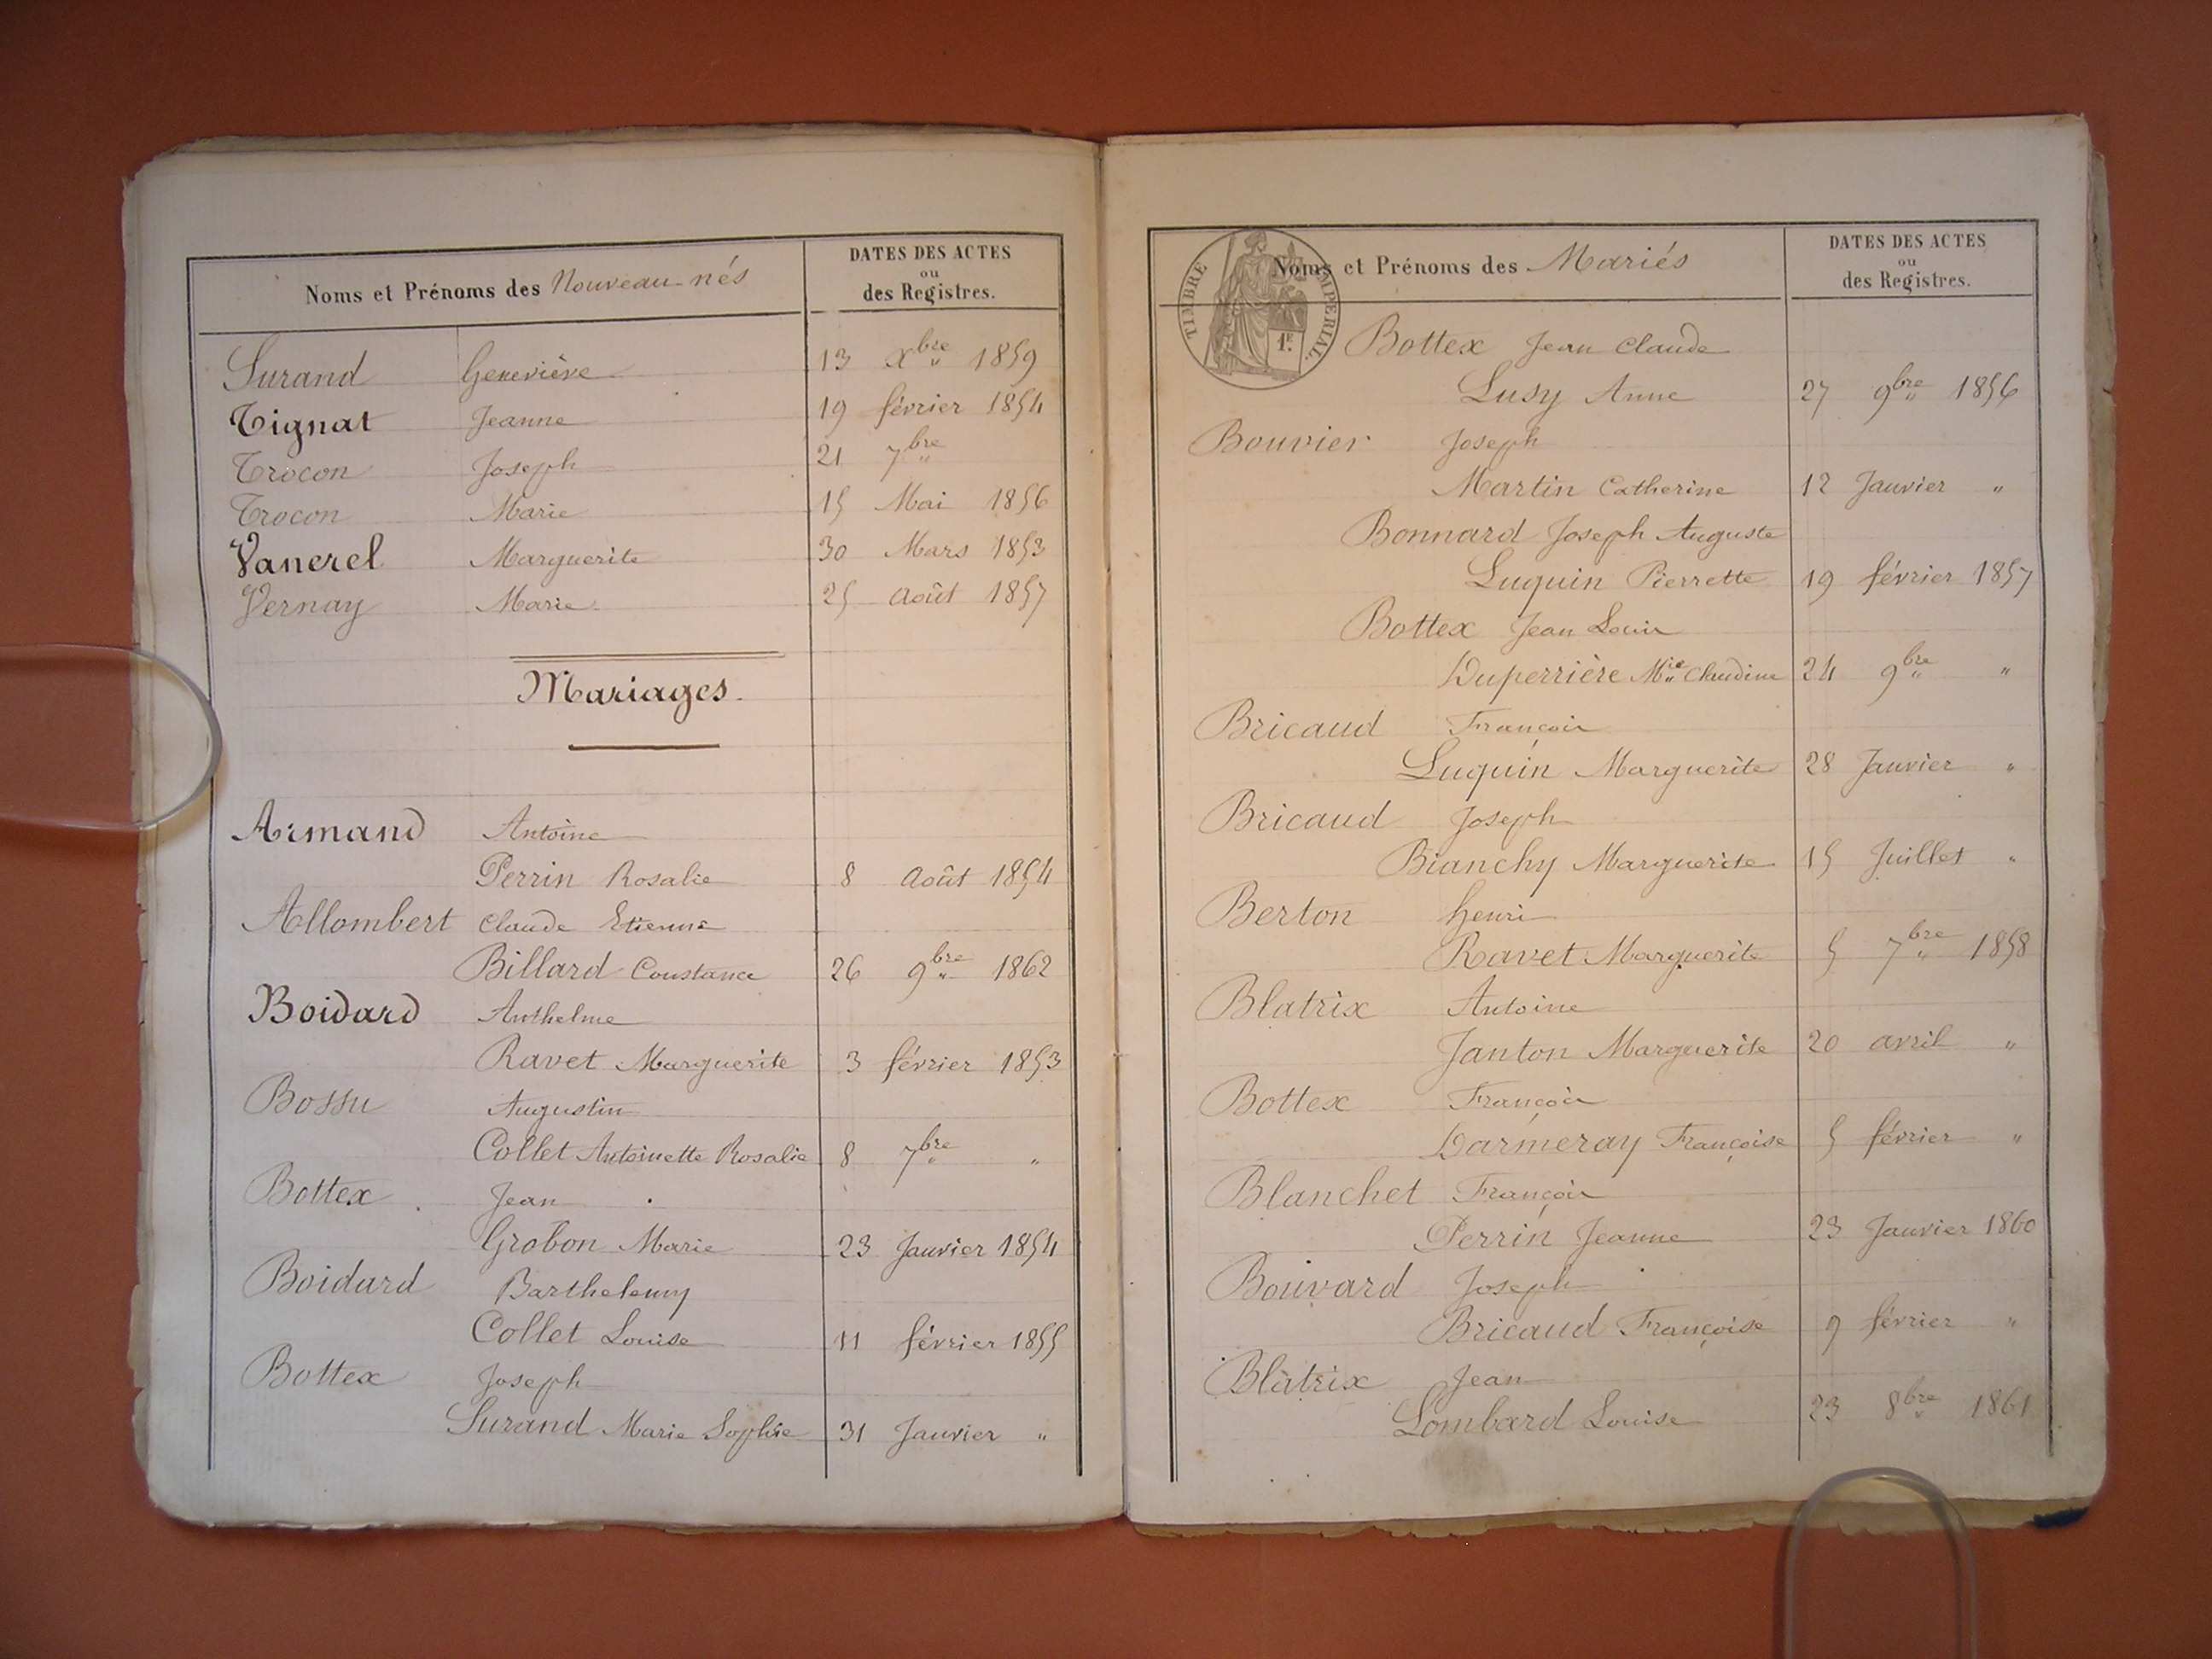 Noms et Prénoms des Nouveau-nés
DATES DES ACTES
ou
des Registres.
Surand Geneviève 13 Xbre 1859
Tignat Jeanne 19 février 1854
Trocon Joseph 21 7bre "
Trocon Marie 15 Mai 1856
Vanerel Marguerite 30 Mars 1853
Vernay Marie 25 Août 1857
Mariages.
Armand Antoine
Perrin Rosalie 8 Août 1854
Allombert Claude Etienne
Billard Constance 26 9bre 1862
Boidard Anthelme
Ravet Marguerite 3 février 1853
Bossu Augustin
Collet Antoinette Rosalie 8 7bre "
Bottex Jean
Grobon Marie 23 Janvier 1854
Boidard Barthelemy
Collet Louise 11 février 1855
Bottex Joseph
Surand Marie Sophie 31 Janvier "
TIMBRE IMPERIAL.
1F.
Noms et Prénoms des Mariés
DATES DES ACTES
ou
des Registres.
Bottex Jean Claude
Lusy Anne 27 9bre 1856
Bouvier Joseph
Martin Catherine 12 Janvier "
Bonnard Joseph Auguste
Luquin Pierrette 19 février 1857
Bottex Jean Louis
Duperrière Mie Claudine 24 9bre "
Bricaud François
Luquin Marguerite 28 Janvier "
Bricaud Joseph
Bianchy Marguerite 15 Juillet "
Berton henri
Ravet Marguerite 5 7bre 1858
Blatrix Antoine
Janton Marguerite 20 avril "
Bottex François
Darmeray Françoise 5 février "
Blanchet François
Perrin Jeanne 23 Janvier 1860
Bouvard Joseph
Bricaud Françoise 9 février "
Blatrix Jean
Lombard Louise 23 8bre 1861